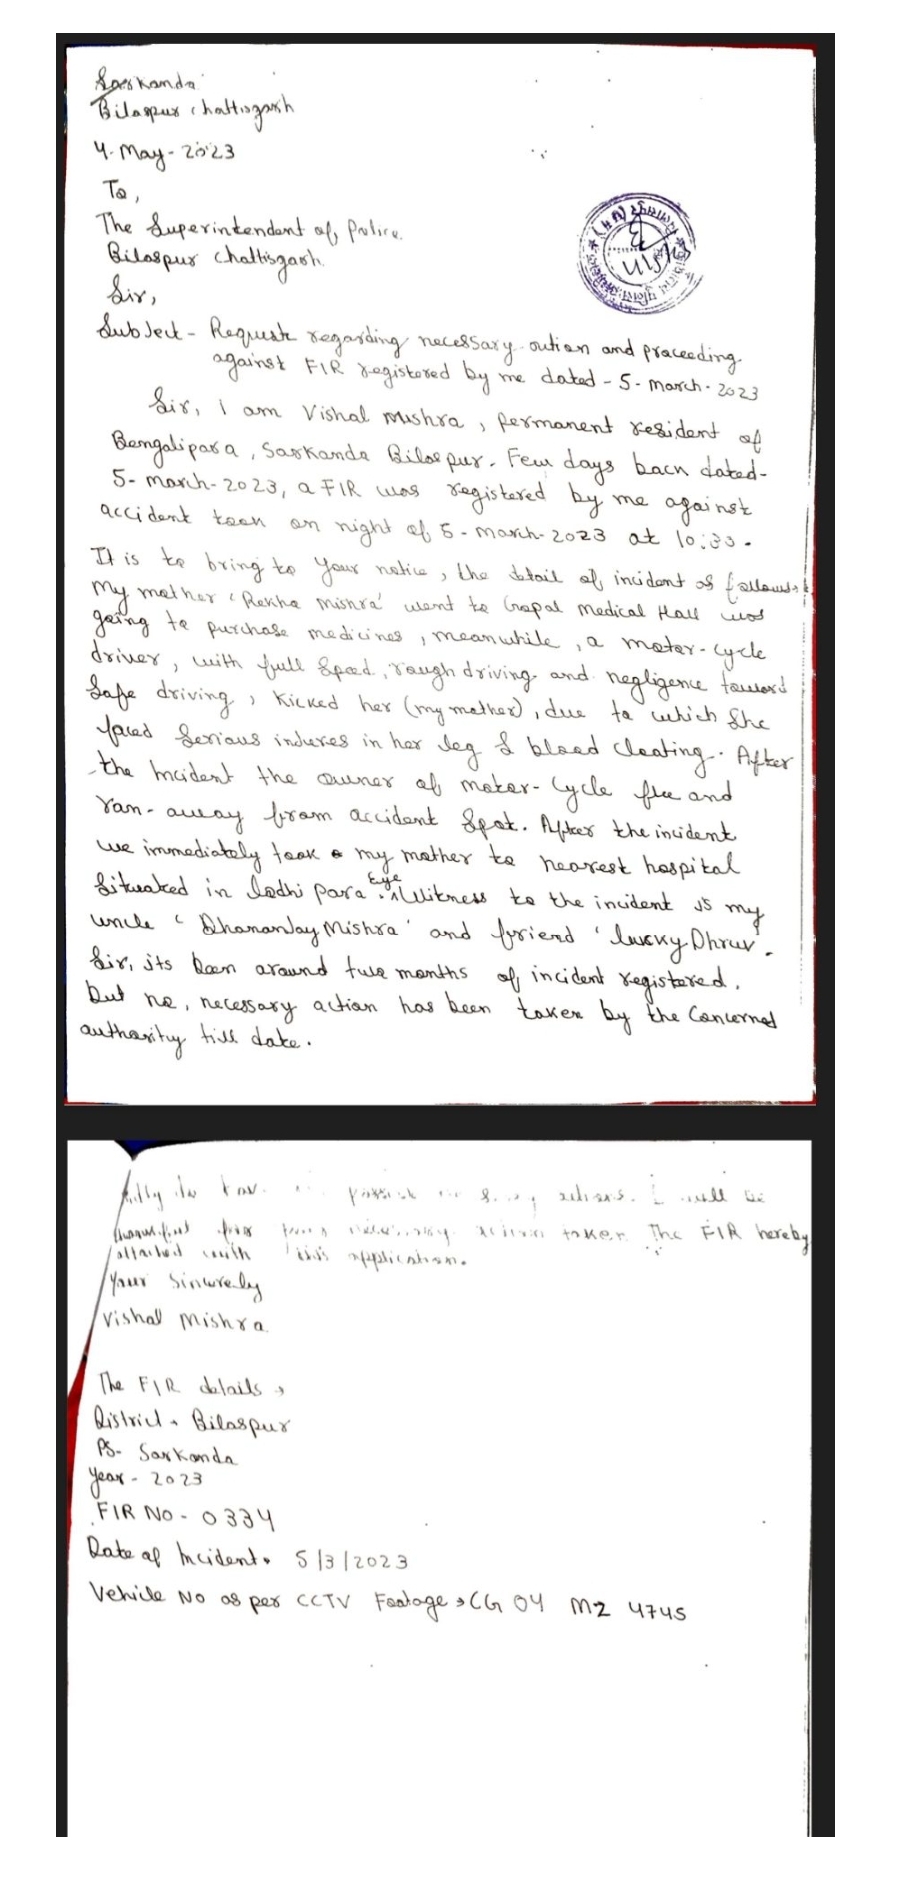 Sarkanda
Bilaspur Chattisgarh
4-May-2023
To,
The Superintendent of Police.
Bilaspur Chattisgarh.
Sir,
Subject - Request regarding necessary action and proceeding
against FIR registered by me dated - 5-march-2023
Sir, I am Vishal Mishra, permanent resident of
Bengalipara, Sarkanda Bilaspur. Few days back dated-
5-march-2023, a FIR was registered by me against
accident took on night of 5-march-2023 at 10:30.
It is to bring to your notice, the detail of incident as follows
My mother 'Rekha Mishra' went to Gopal Medical Hall was
going to purchase medicines, meanwhile, a motor-cycle
driver, with full speed, rough driving and negligence toward
safe driving, Kicked her (my mother), due to which She
faced serious injures in her leg & blood cloating. After
the Incident the owner of motor-cycle flee and
ran-away from accident spot. After the incident
we immediately took my mother to nearest hospital
situated in lodhi para. Eye Witness to the incident is my
uncle 'Dhananjay Mishra' and friend 'lucky Dhruv'.
Sir, its been around two months of incident registered,
but no, necessary action has been taken by the Concerned
authority till date.
actions. I will be
for necessary action taken. The FIR hereby
attached with this application.
Your Sincerely
Vishal Mishra.
The FIR details →
District - Bilaspur
PS- Sarkanda
Year - 2023
FIR No - 0334
Date of Incident - 5/3/2023
Vehicle No as per CCTV Footage → CG 04 MZ 4745